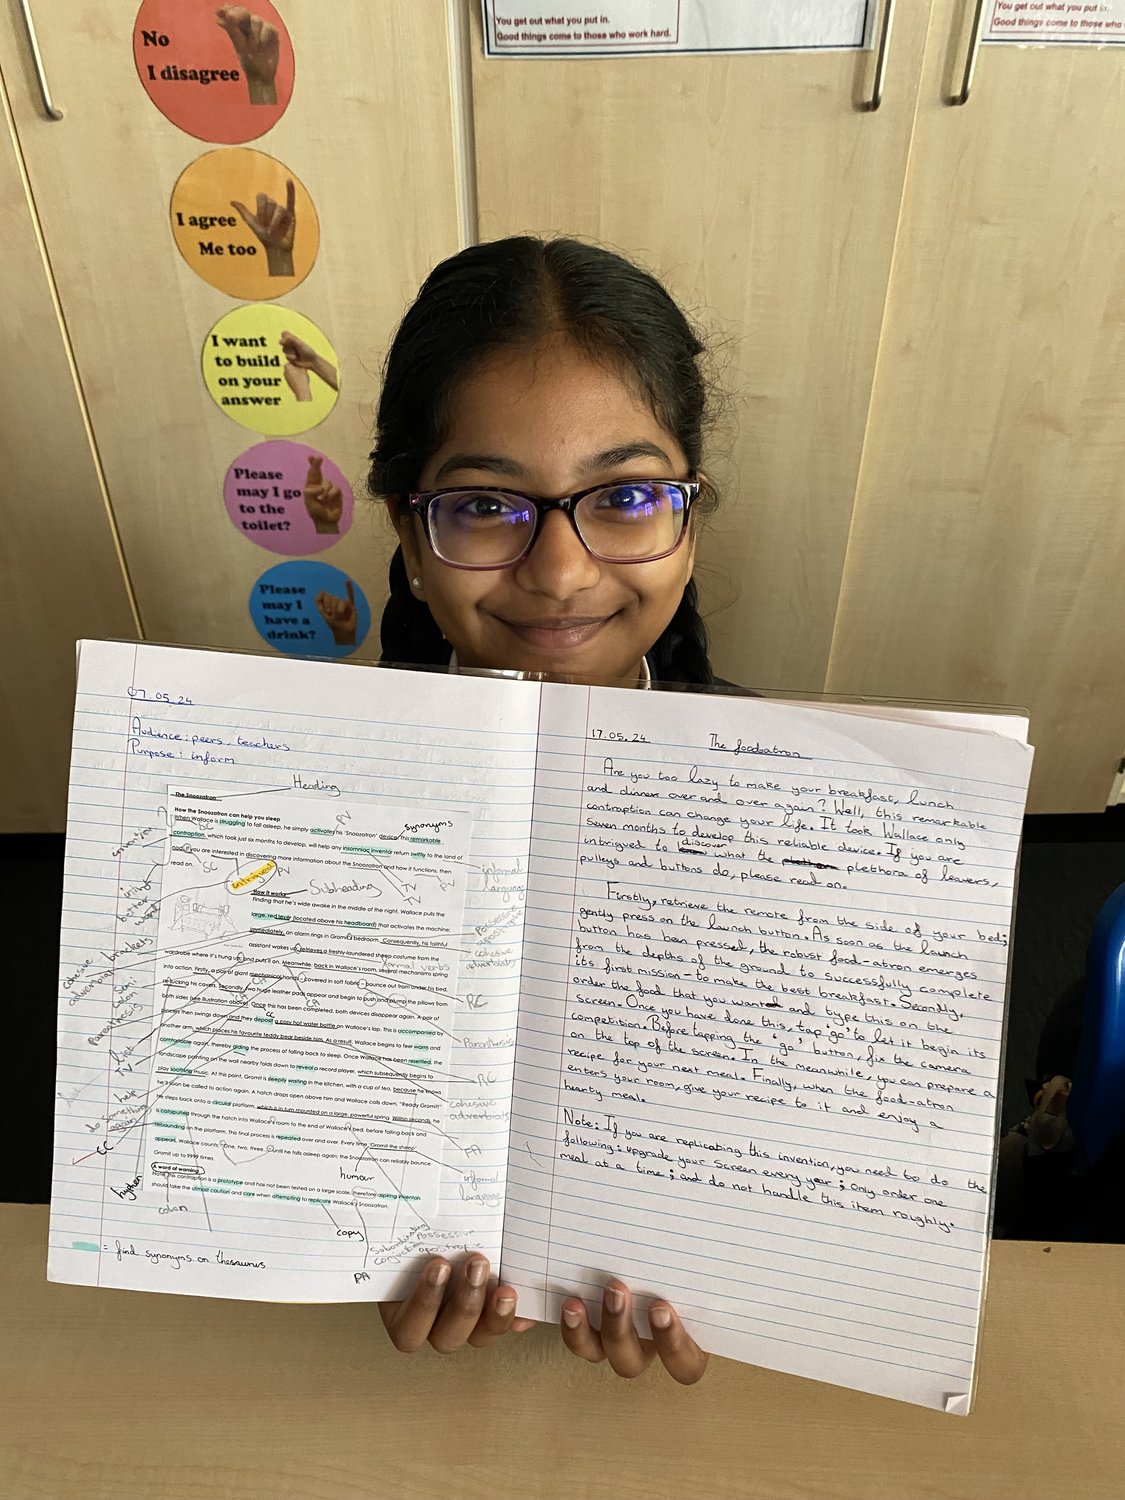 No
I disagree
I agree
Me too
I want
to build
on your
answer
Please
may I go
to the
toilet?
Please
may I
have a
drink?
You get out what you put in.
Good things come to those who work hard.
You get out what you put in.
Good things come to those who
07.05.24
Audience: peers, teachers
Purpose: inform
Heading
The Snoozatron
How the Snoozatron can help you sleep
When Wallace is struggling to fall asleep, he simply activates his 'Snoozatron' device; this remarkable
contraption, which took just six months to develop, will help any insomniac inventor return swiftly to the land of
nod. If you are interested in discovering more information about the Snoozatron and how it functions, then
read on.
synonyms
PV
SC
intrigued
PV
TV
TV
PV
informal
language
Subheading
How it works
Finding that he's wide awake in the middle of the night, Wallace pulls the
large, red lever (located above his headboard) that activates the machine;
immediately, an alarm rings in Gromit's bedroom. Consequently, his faithful
assistant wakes up, retrieves a freshly-laundered sheep costume from the
wardrobe where it's hung up and puts it on. Meanwhile, back in Wallace's room, several mechanisms spring
into action. Firstly, a pair of giant mechanical hands - covered in soft fabric - bounce out from under his bed,
re-tucking his covers. Secondly, two huge leather pads appear and begin to push and plump the pillows from
both sides (see illustration above). Once this has been completed, both devices disappear again. A pair of
pincers then swings down and they deposit a cosy hot water bottle on Wallace's lap. This is accompanied by
another arm, which places his favourite teddy bear beside him. As a result, Wallace begins to feel warm and
comfortable again, thereby gliding the process of falling back to sleep. Once Wallace has been resettled, the
landscape painting on the wall nearby folds down to reveal a record player, which subsequently begins to
play soothing music. At this point, Gromit is sleepily waiting in the kitchen, with a cup of tea, because he knows
he'll soon be called to action again. A hatch drops open above him and Wallace calls down, "Ready Gromit!"
He steps back onto a circular platform, which is in turn mounted on a large, powerful spring. Within seconds, he
is catapulted through the hatch into Wallace's room to the end of Wallace's bed, before falling back and
rebounding on the platform. This final process is repeated over and over. Every time 'Gromit the sheep'
appears, Wallace counts: one, two, three... until he falls asleep again; the Snoozatron can reliably bounce
Gromit up to 9999 times.
A word of warning
Note: this contraption is a prototype and has not been tested on a large scale; therefore aspiring inventors
should take the utmost caution and care when attempting to replicate Wallace's Snoozatron.
brackets
cohesive
adverbials
formal verbs
RC
Parenthesis
RC
cohesive
adverbials
FA
informal
language
humour
hyphen
colon
copy
Subordinating
conjunction
Possessive
apostrophe
PA
= find synonyms on thesaurus
17.05.24
The foodatron
Are you too lazy to make your breakfast, lunch
and dinner over and over again? Well, this remarkable
contraption can change your life. It took Wallace only
seven months to develop this reliable device. If you are
intrigued to discover what the plethora of leavers,
pulleys and buttons do, please read on.
Firstly, retrieve the remote from the side of your bed;
gently press on the launch button. As soon as the launch
button has been pressed, the robust food-atron emerges
from the depths of the ground to successfully complete
its first mission- to make the best breakfast. Secondly,
order the food that you want and type this on the
screen. Once you have done this, tap 'go' to let it begin its
competition. Before tapping the 'go' button, fix the camera
on the top of the screen. In the meanwhile, you can prepare a
recipe for your next meal. Finally, when the food-atron
enters your room, give your recipe to it and enjoy a
hearty meal.
Note: If you are replicating this invention, you need to do the
following: upgrade your screen every year; only order one
meal at a time; and do not handle this item roughly.